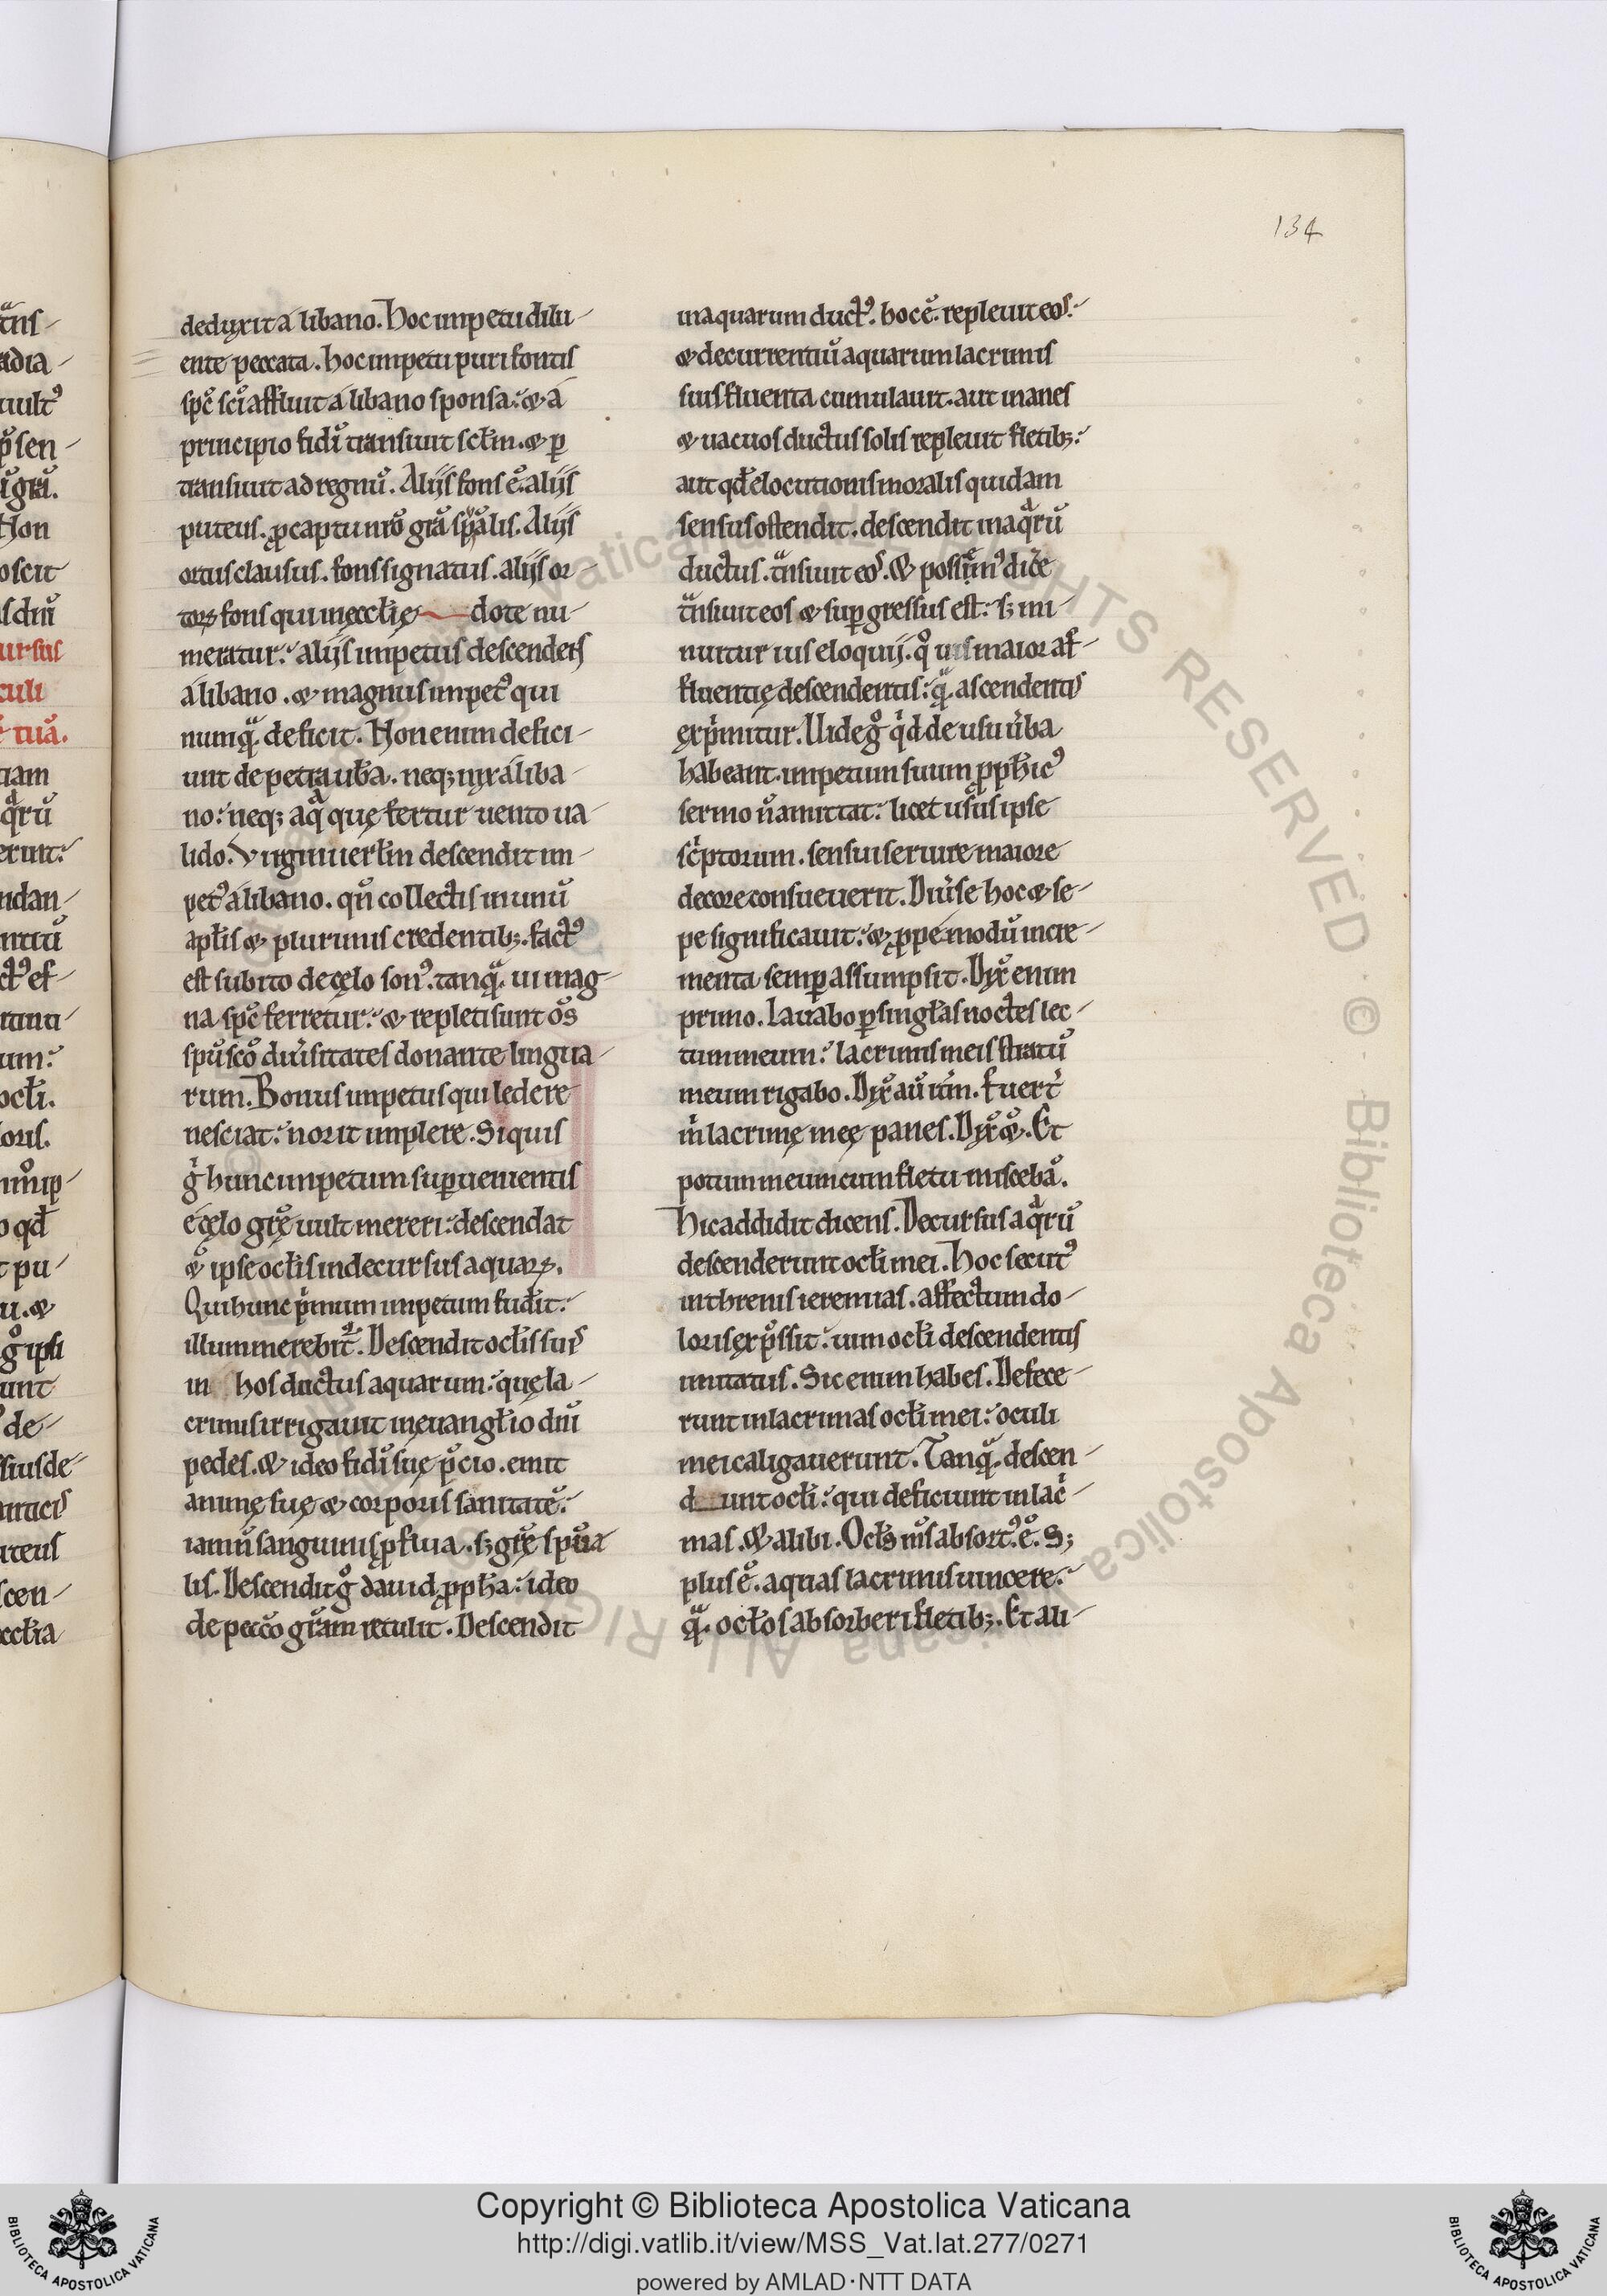 134
deduxit a libano. Hoc impetu dilu-
ente peccata. hoc impetu puri fontis
spc̄ sci affluit á libano sponsa: & á
principio fidi transiuit sclm. & p̲
transiuit ad regnū. Alijs fons ē. alijs
puteus. p captu nr̄o gr̄a sp̄alis. Alijs
ortus clausus. fons signatus. alijs or-
toꝝ fons qui in ęcclię dote nu-
meratur: alijs impetus descendens
á libano. & magnus impetꝰ qui
numqᷓ. deficit. Non enim defici-
unt de petra ubera. neq; nix á liba-
no: neq; aqᷓ quę fertur uento ua-
lido. Virgini uerł in descendit im-
petꝰ á libano. qn̄ collectis in unū
aplīs & plurimis credentib;. factꝰ
est subito de cęlo sonꝰ. tanqᷓ. ui mag-
na spc̄ ferretur: & repleti sunt os̄
spū sc̄o diu̾sitates donante lingua-
rum. Bonus impetus qui ledere
nesciat: norit implere. Siquis
g̾ hunc impetum superuenientis
é cęlo gr̄ę uult mereri: descendat
& ipse oclīs in decursus aquaꝝ.
Qui hunc p̾mum impetum fuderit:
illum merebit᷑. Descendit oclīs suis
in hos ductus aquarum: quę la-
crimis irrigauit in euanglīo dnī
pedes. & ideo fidi suę p̄cio. emit
animę suę & corporis sanitatē:
iam n̄ sanguinis pfluuia. s; gr̄ę sp̄ua-
lis. Descendit gͦ dauid ppha: ideo
de pecc̄o gr̄am retulit. Descendit
in aquarum ductꝰ. hoc ē. repleuit eos:
& decurrentiū aquarum lacrimis
suis fluenta cumulauit. aut inanes
& uacuos ductus solis repleuit fletib;:
aut qd̄ elocutionis moralis quidam
sensus ostendit. descendit in aqᷓrū
ductus. tᷓnsiuit eos. & possumꝰ dic̄e
tᷓnsiuit eos & supgressus est: s; mi-
nuitur ius eloquij. qͦ uis maior af-
fluentię descendentis: qᷓ. ascendentis
exp̾mitur. Uide gͦ qͥd de usu u̾ba
habeant. impetum suum pphicꝰ
sermo n̄ amittat: licet usus ipse
sc̾ptorum. sensui seruire maiore
decore consueuerit. Diu̾se hoc & se-
pe significauit: & ppé modū incre-
menta semp assumpsit. Dix̄ enim
primo. Lauabo p singlas noctes lec-
tum meum: lacrimis meis stratū
meum rigabo. Dix̄ aū itm̄. Fuert̾
m̾ lacrimę meę panes. Dix̄ &. Et
potum meum cum fletu miscebā.
Hic addidit dicens. Decursus aqᷓrū
descenderunt oclī mei. Hoc secutꝰ
in threnis ieremias. affectum do-
loris exp̄ssit: uim oclī descendentis
imitatus. Sic enim habes. Defece-
runt in lacrimas oclī mei: oculi
mei caligauerunt. Tanqᷓ. descen-
d unt oclī: qui deficiunt in lac̾-
mas. & alibi. Ocls̄ ms̄ absortꝰ ē. S;
plus ē. aquas lacrimis uincere:
qᷓ. oclōs absorberi fletib;. Et ali-
Copyright © Biblioteca Apostolica Vaticana
http://digi.vatlib.it/view/MSS_Vat.lat.277/0271
powered by AMLAD·NTT DATA
BIBLIOTECA APOSTOLICA VATICANA
BIBLIOTECA APOSTOLICA VATICANA